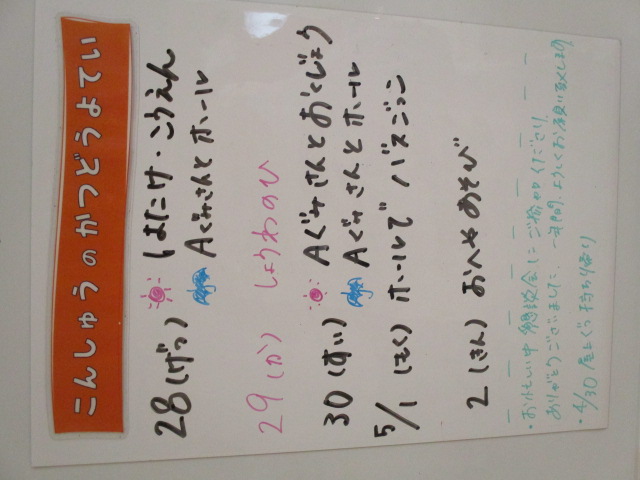 こんしゅうのかつどうよてい
28(げつ) はたけ・こうえん
Aぐみさんとホール
29(か) しょうわのひ
30(すい) Aぐみさんとおくじょう
Aぐみさんとホール
5/1(もく) ホールで バスごっこ
2(きん) おへやあそび
・お忙しい中 懇談会にご参加くださり、
ありがとうございました。一年間、よろしくお願い致します
・4/30 屋上ぐつ持ち帰り